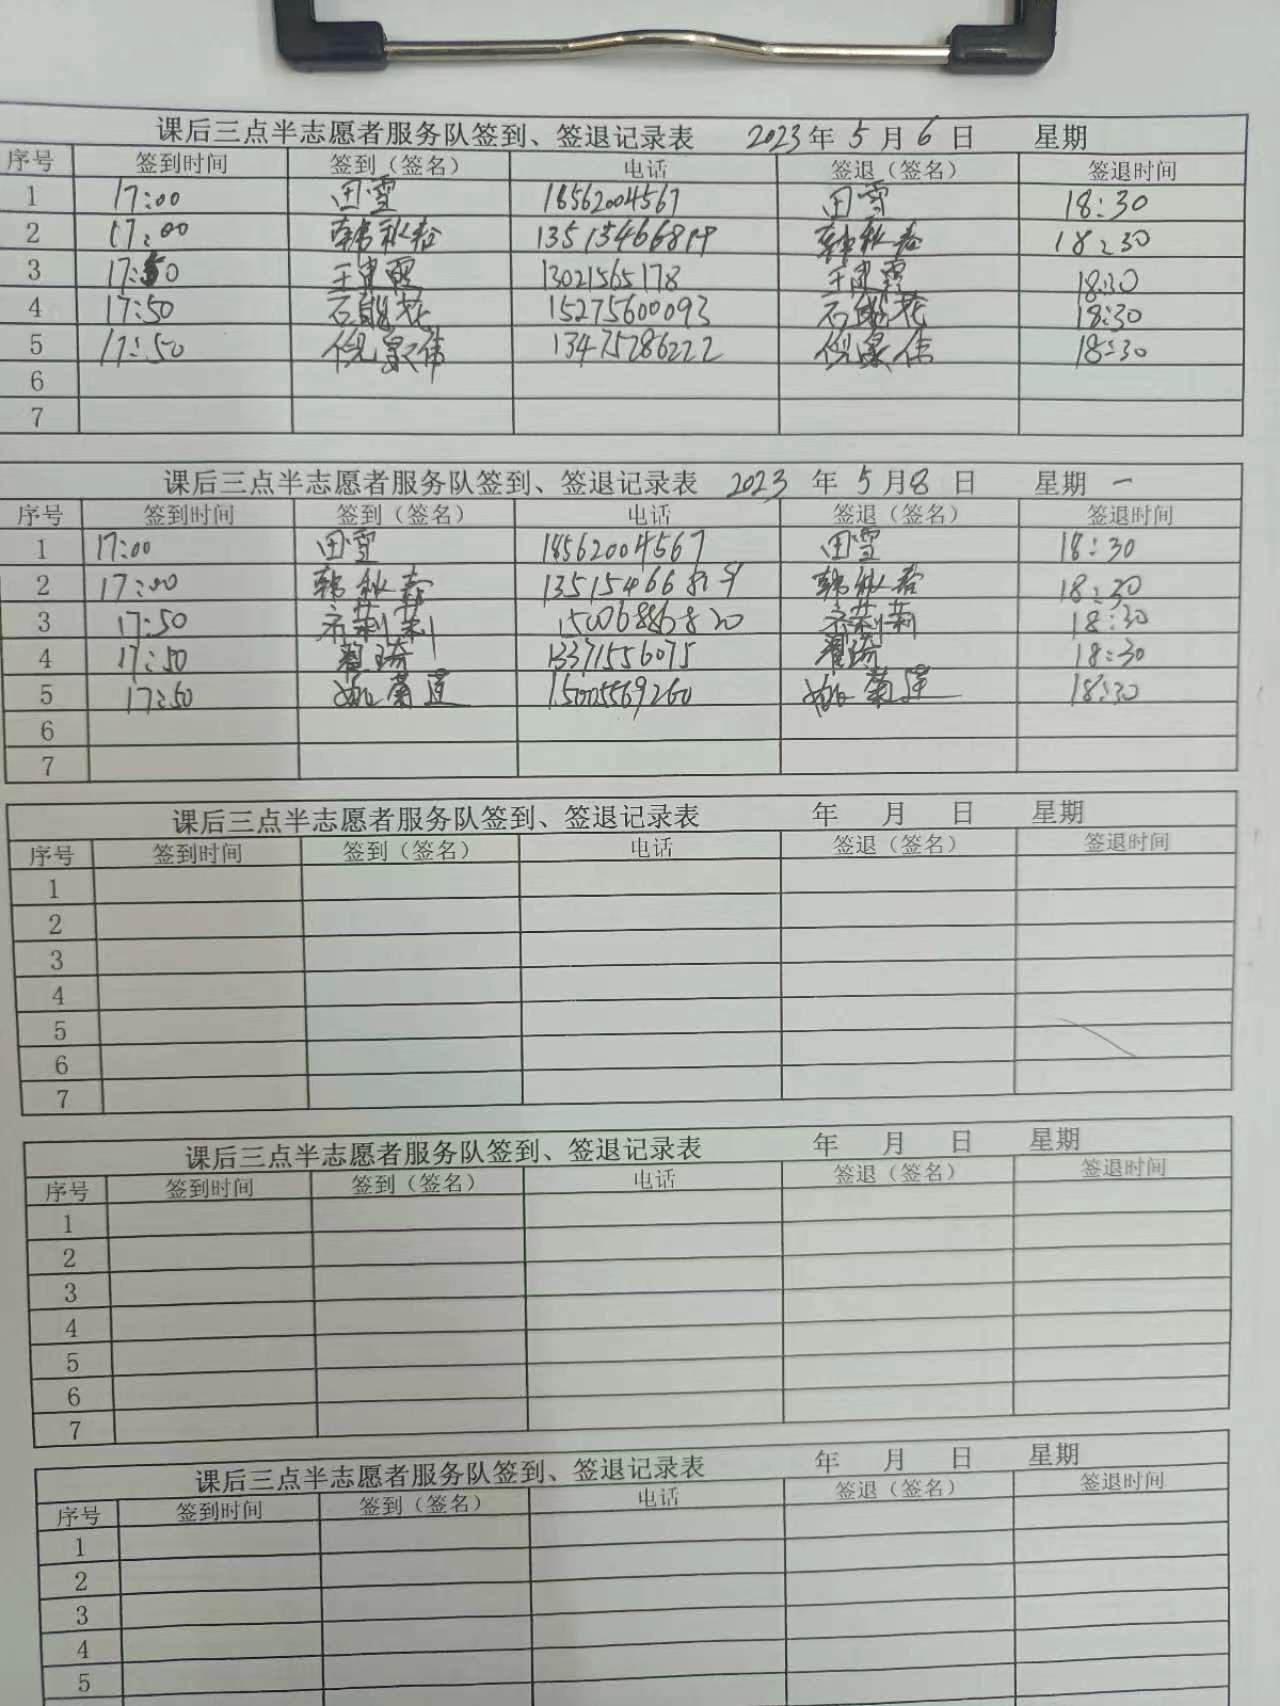 课后三点半志愿者服务队签到、签退记录表 2023 年 5 月 6 日 星期
序号 签到时间 签到（签名） 电话 签退（签名） 签退时间
1 17:00 田雪 18562004567 田雪 18:30
2 17:00 韩秋春 韩秋春 18:30
3 17:50 王建霞 13021565178 王建霞 18:30
4 17:50 15275600093 18:30
5 17:50 倪家伟 13475286222 倪家伟 18:30
6
7
课后三点半志愿者服务队签到、签退记录表 2023 年 5 月 8 日 星期 一
序号 签到时间 签到（签名） 电话 签退（签名） 签退时间
1 17:00 田雪 18562004567 田雪 18:30
2 17:00 韩秋春 韩秋春 18:30
3 17:50 齐莉莉 15006886820 齐莉莉 18:30
4 17:50 翟琦 13371556075 翟琦 18:30
5 17:50 姚菊莲 15005569260 姚菊莲 18:30
6
7
课后三点半志愿者服务队签到、签退记录表 年 月 日 星期
序号 签到时间 签到（签名） 电话 签退（签名） 签退时间
1
2
3
4
5
6
7
课后三点半志愿者服务队签到、签退记录表 年 月 日 星期
序号 签到时间 签到（签名） 电话 签退（签名） 签退时间
1
2
3
4
5
6
7
课后三点半志愿者服务队签到、签退记录表 年 月 日 星期
序号 签到时间 签到（签名） 电话 签退（签名） 签退时间
1
2
3
4
5